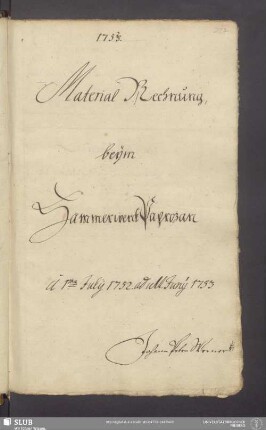 1753.
Material Rechnung,
beÿm
Hammerwerk Paprozan
à 1ma July 1752 ad ult: Junÿ 1753
Johann Peter Werner
SLUB